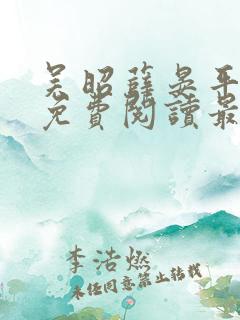 吴昭薛晏平
免費閱讀最
李浩燃
未经同意禁止转载